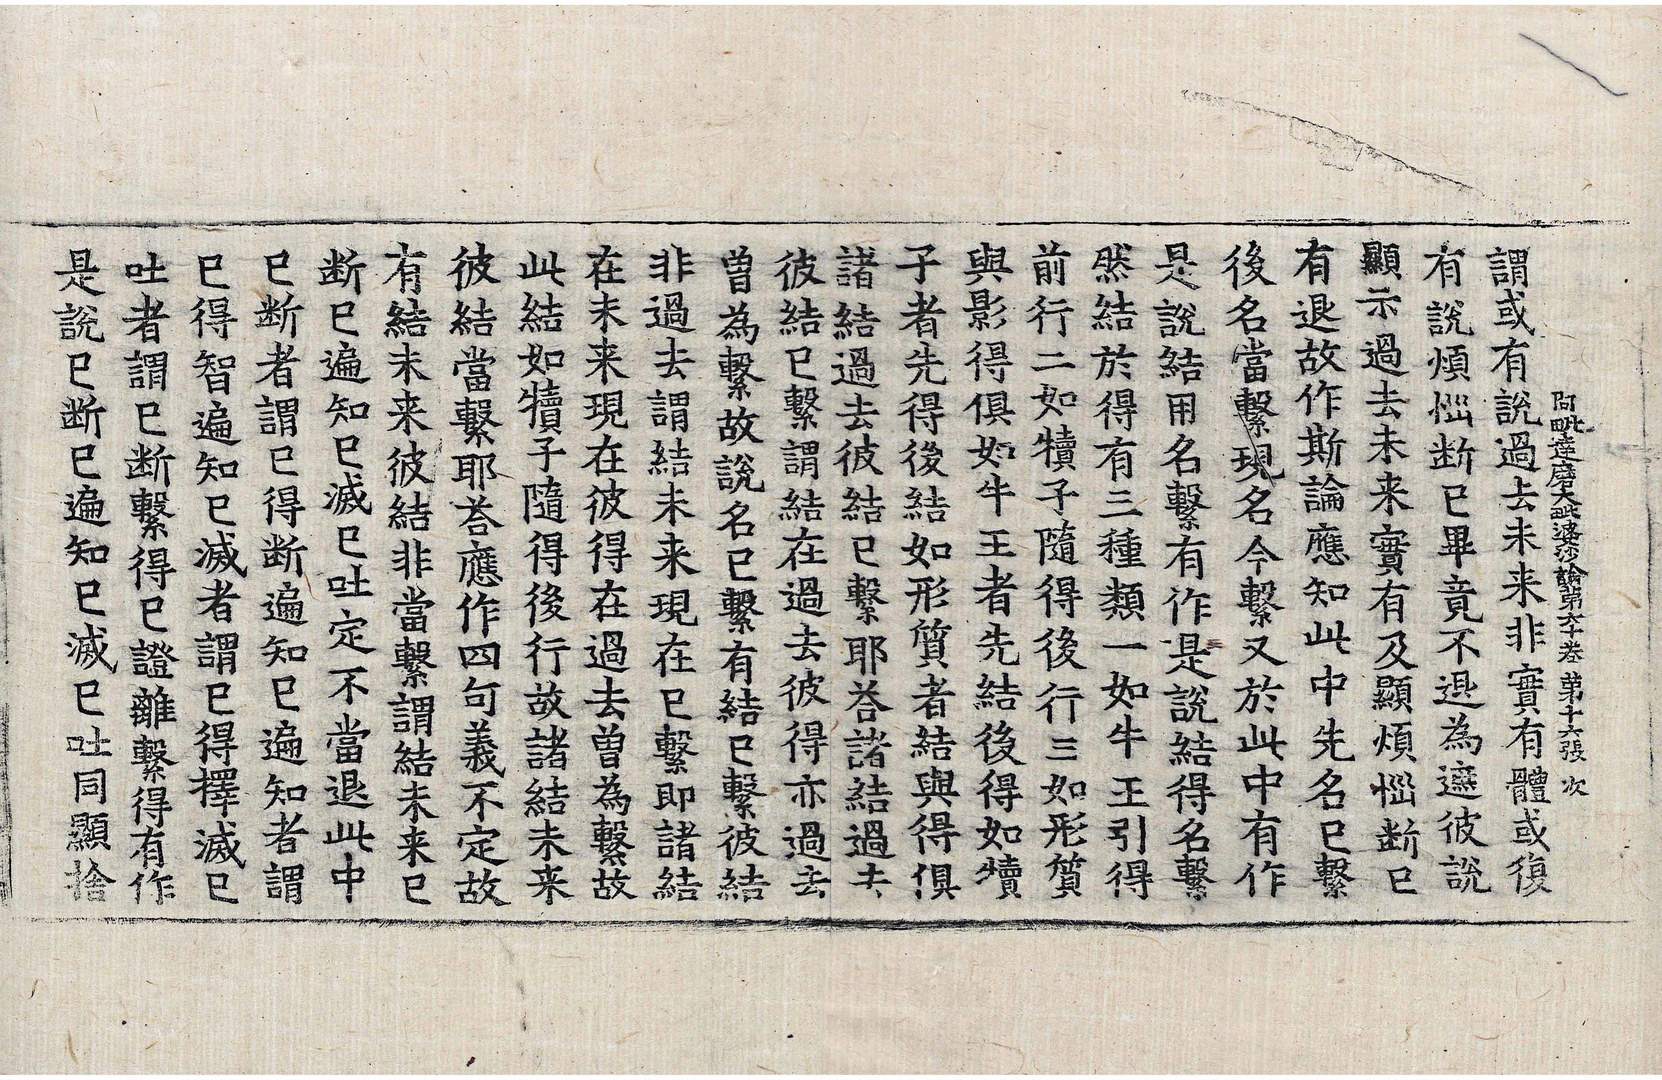 阿毗達磨大毗婆沙論第六十卷 第十六張 次
謂或有說過去未来非實有體或復
有說煩惱断已畢竟不退為遮彼說
顯示過去未来實有及顯煩惱断已
有退故作斯論應知此中先名已繫
後名當繫現名今繫又於此中有作
是說結用名繫有作是說結得名繫
然結於得有三種類一如牛王引得
前行二如犢子隨得後行三如形質
與影得俱如牛王者先結後得如犢
子者先得後結如形質者結與得俱
諸結過去彼結已繫耶荅諸結過去
彼結已繫謂結在過去彼得亦過去
曽為繫故說名已繫有結已繫彼結
非過去謂結未来現在已繫即諸結
在未来現在彼得在過去曽為繫故
此結如犢子隨得後行故諸結未来
彼結當繫耶荅應作四句義不定故
有結未来彼結非當繫謂結未来已
断已遍知已滅已吐定不當退此中
已断者謂已得断遍知已遍知者謂
已得智遍知已滅者謂已得擇滅已
吐者謂已断繫得已證離繫得有作
是說已断已遍知已滅已吐同顯捨